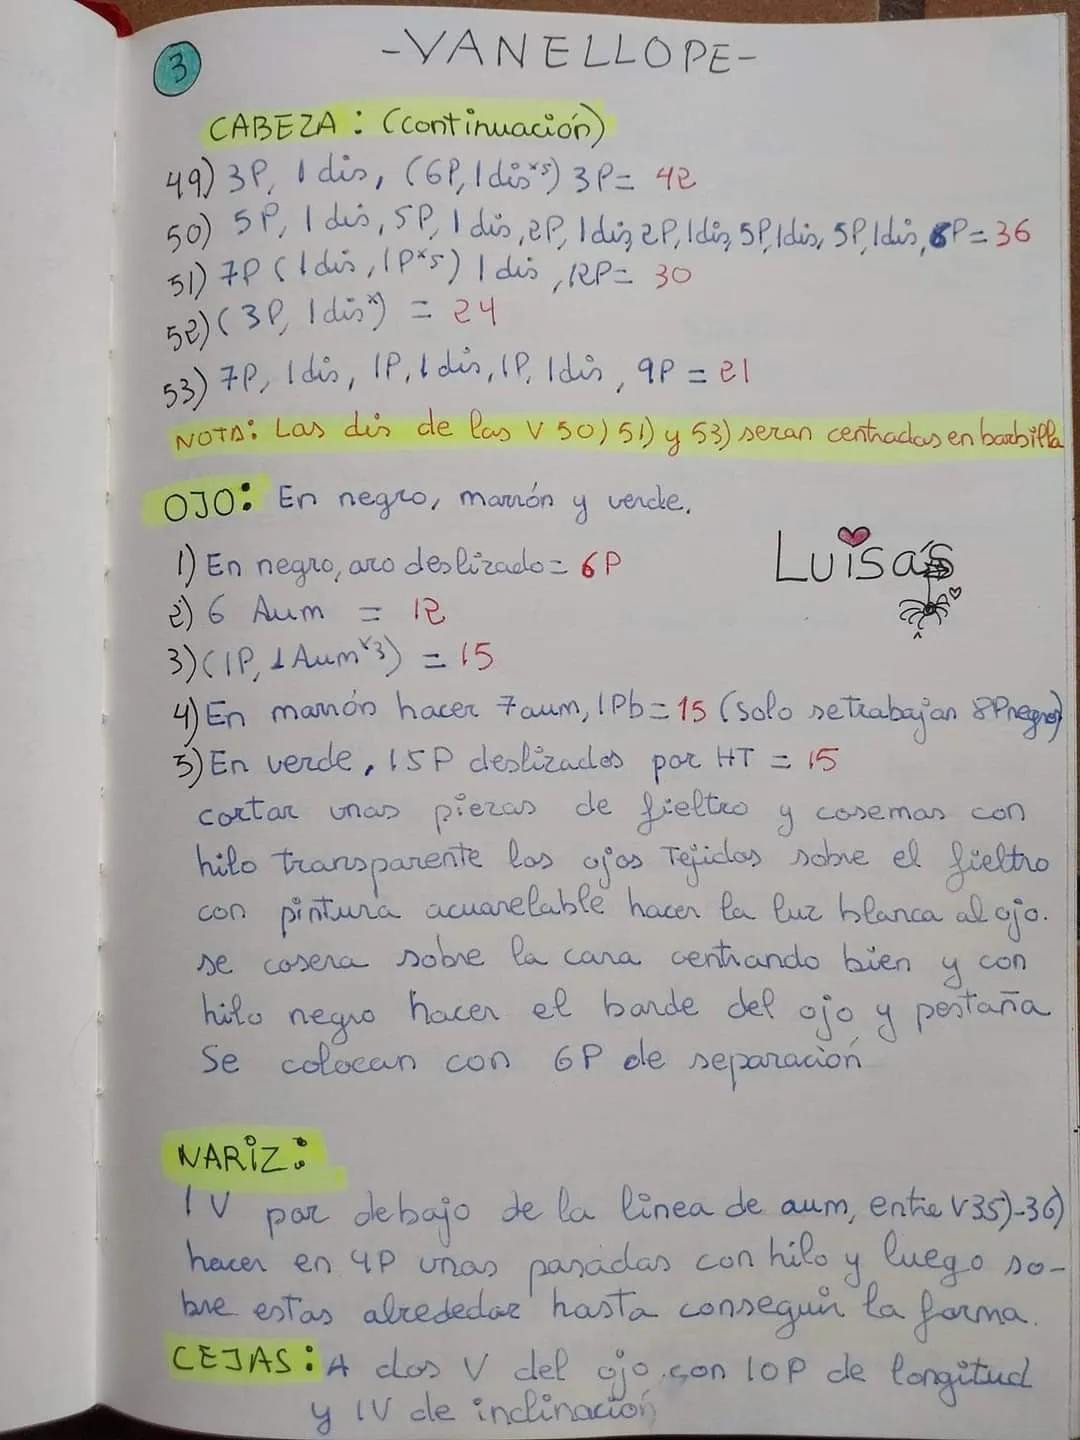 3
-VANELLOPE-
CABEZA: (continuación)
49) 3P, 1 dis, (6P, 1 dis x5) 3P= 42
50) 5P, 1 dis, 5P, 1 dis, 2P, 1 dis, 2P, 1 dis, 5P, 1 dis, 5P, 1 dis, 6P= 36
51) 7P (1 dis, 1P x5) 1 dis, 12P= 30
52) (3P, 1 dis x) = 24
53) 7P, 1 dis, 1P, 1 dis, 1P, 1 dis, 9P = 21
NOTA: Las dis de las V 50) 51) y 53) seran centradas en barbilla
OJO: En negro, marrón y verde.
Luisa's
1) En negro, aro deslizado= 6P
2) 6 Aum = 12
3) (1P, 1 Aum x3) = 15
4) En marrón hacer 7 aum, 1Pb= 15 (Solo se trabajan 8P negros)
5) En verde, 15P deslizados por HT = 15
cortar unas piezas de fieltro y cosemas con
hilo transparente los ojos Tejidos sobre el fieltro
con pintura acuarelable hacer la luz blanca al ojo.
se cosera sobre la cara centrando bien y con
hilo negro hacer el borde del ojo y pestaña
Se colocan con 6P de separación
NARIZ:
1 V por debajo de la linea de aum, entre V35)-36)
hacer en 4P unas pasadas con hilo y luego so-
bre estas alrededor hasta conseguir la forma.
CEJAS: A dos V del ojo con 10P de longitud
y 1V de inclinación